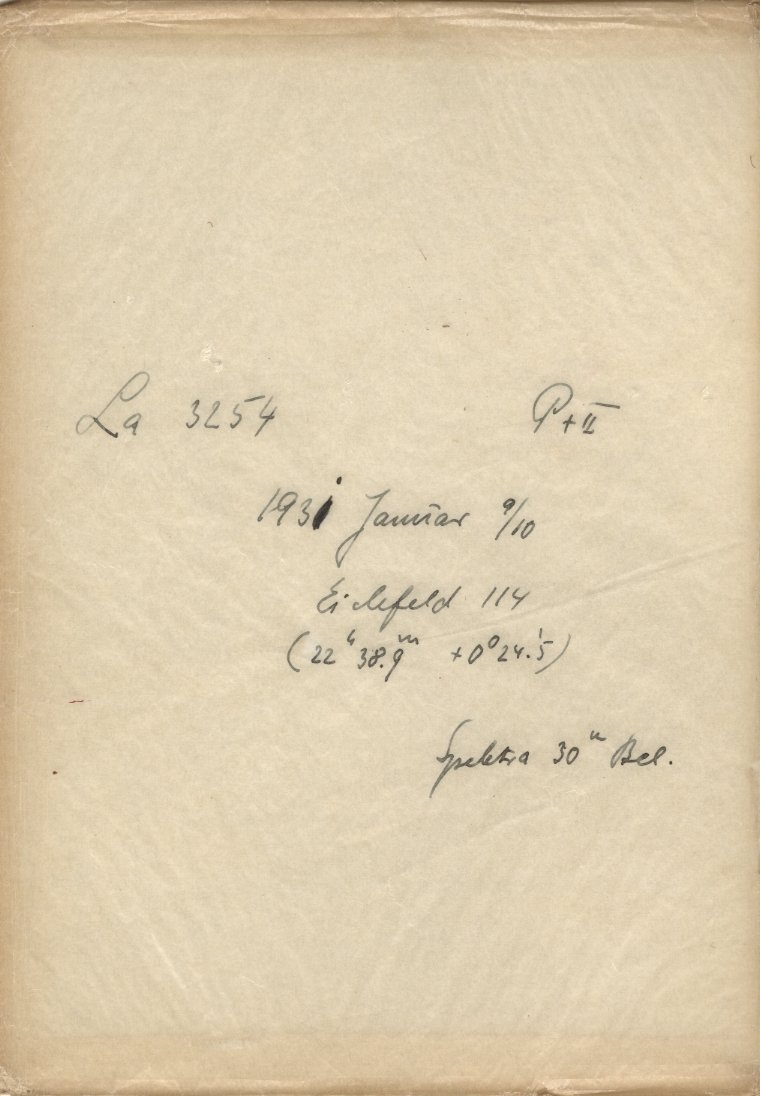 La 3254 P+II
1931 Januar 9/10
Eichfeld 114
(22ʰ 38.9ᵐ +0° 24.'5)
Spektra 30ᵐ Bel.